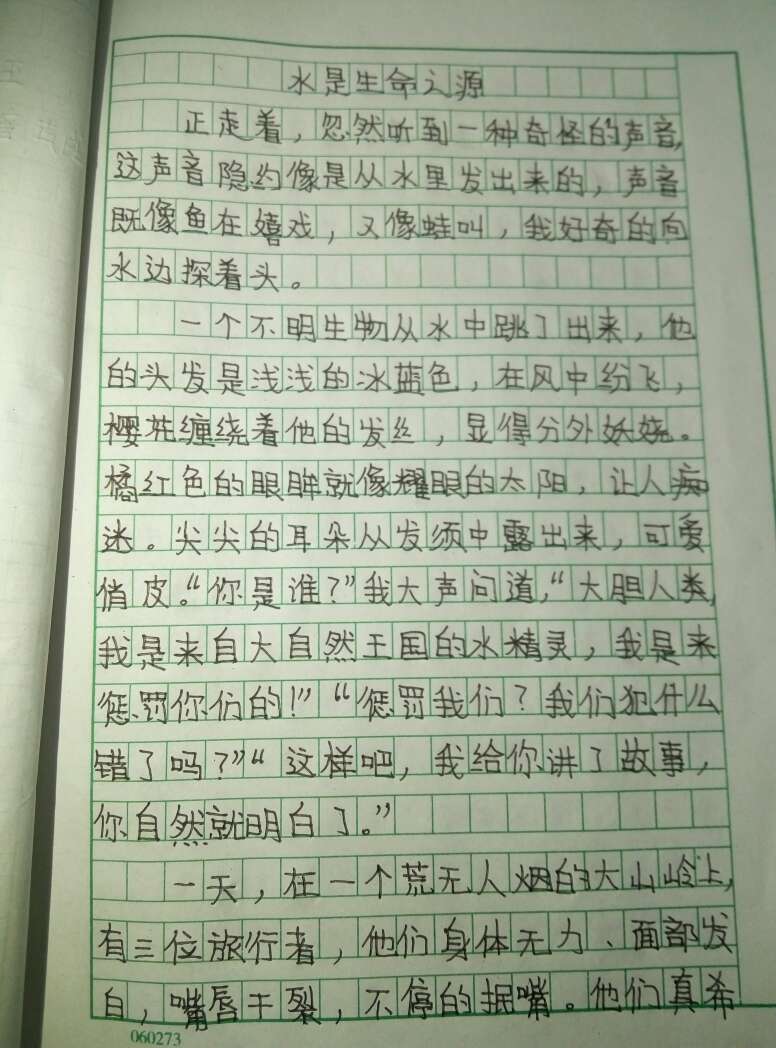 水是生命之源
正走着，忽然听到一种奇怪的声音，
这声音隐约像是从水里发出来的，声音
既像鱼在嬉戏，又像蛙叫，我好奇的向
水边探着头。
一个不明生物从水中跳了出来，他
的头发是浅浅的冰蓝色，在风中纷飞，
樱花缠绕着他的发丝，显得分外妖娆。
橘红色的眼眸就像耀眼的太阳，让人痴
迷。尖尖的耳朵从发须中露出来，可爱
俏皮。“你是谁？”我大声问道，“大胆人类，
我是来自大自然王国的水精灵，我是来
惩罚你们的！”“惩罚我们？我们犯什么
错了吗？”“这样吧，我给你讲了故事，
你自然就明白了。”
一天，在一个荒无人烟的大山岭上，
有三位旅行者，他们身体无力、面部发
白，嘴唇干裂，不停的抿嘴。他们真希
060273